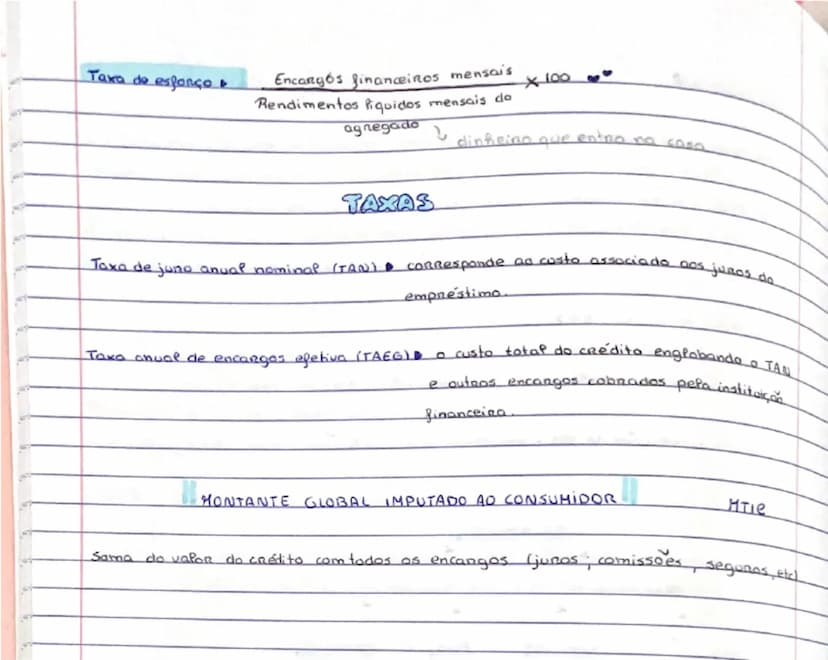 Taxa de esforço
Encargos financeiros mensais x 100
Rendimentos líquidos mensais do
agregado
dinheiro que entra na casa
TAXAS
Taxa de juro anual nominal (TAN) corresponde ao custo associado aos juros do
empréstimo.
Taxa anual de encargos efetiva (TAEG) o custo total do crédito englobando o TAN
e outros encargos cobrados pela instituição
financeira.
MONTANTE GLOBAL IMPUTADO AO CONSUMIDOR
Soma do valor do crédito com todos os encargos (juros; comissões, seguros, etc)